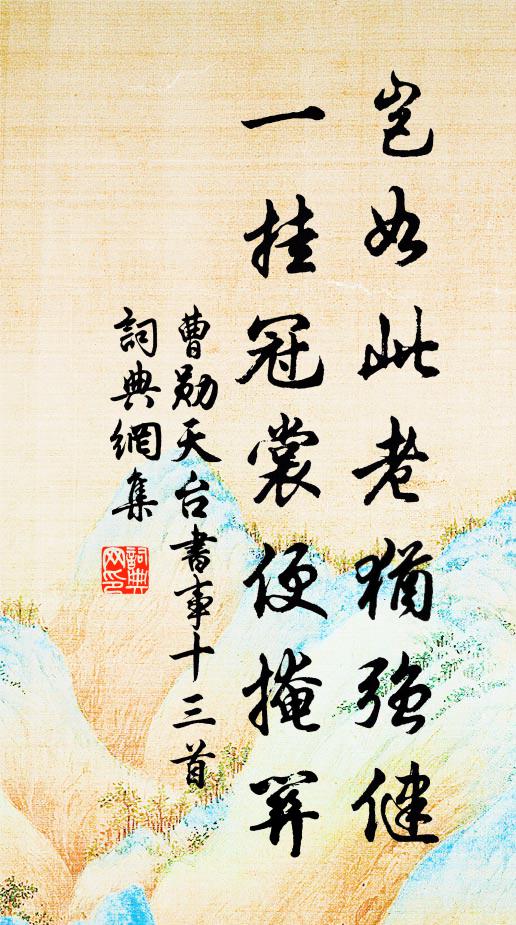 岂如此老犹强健
一挂冠裳便掩关
曹勋天台书事十三首
詞典網集
詞典网印